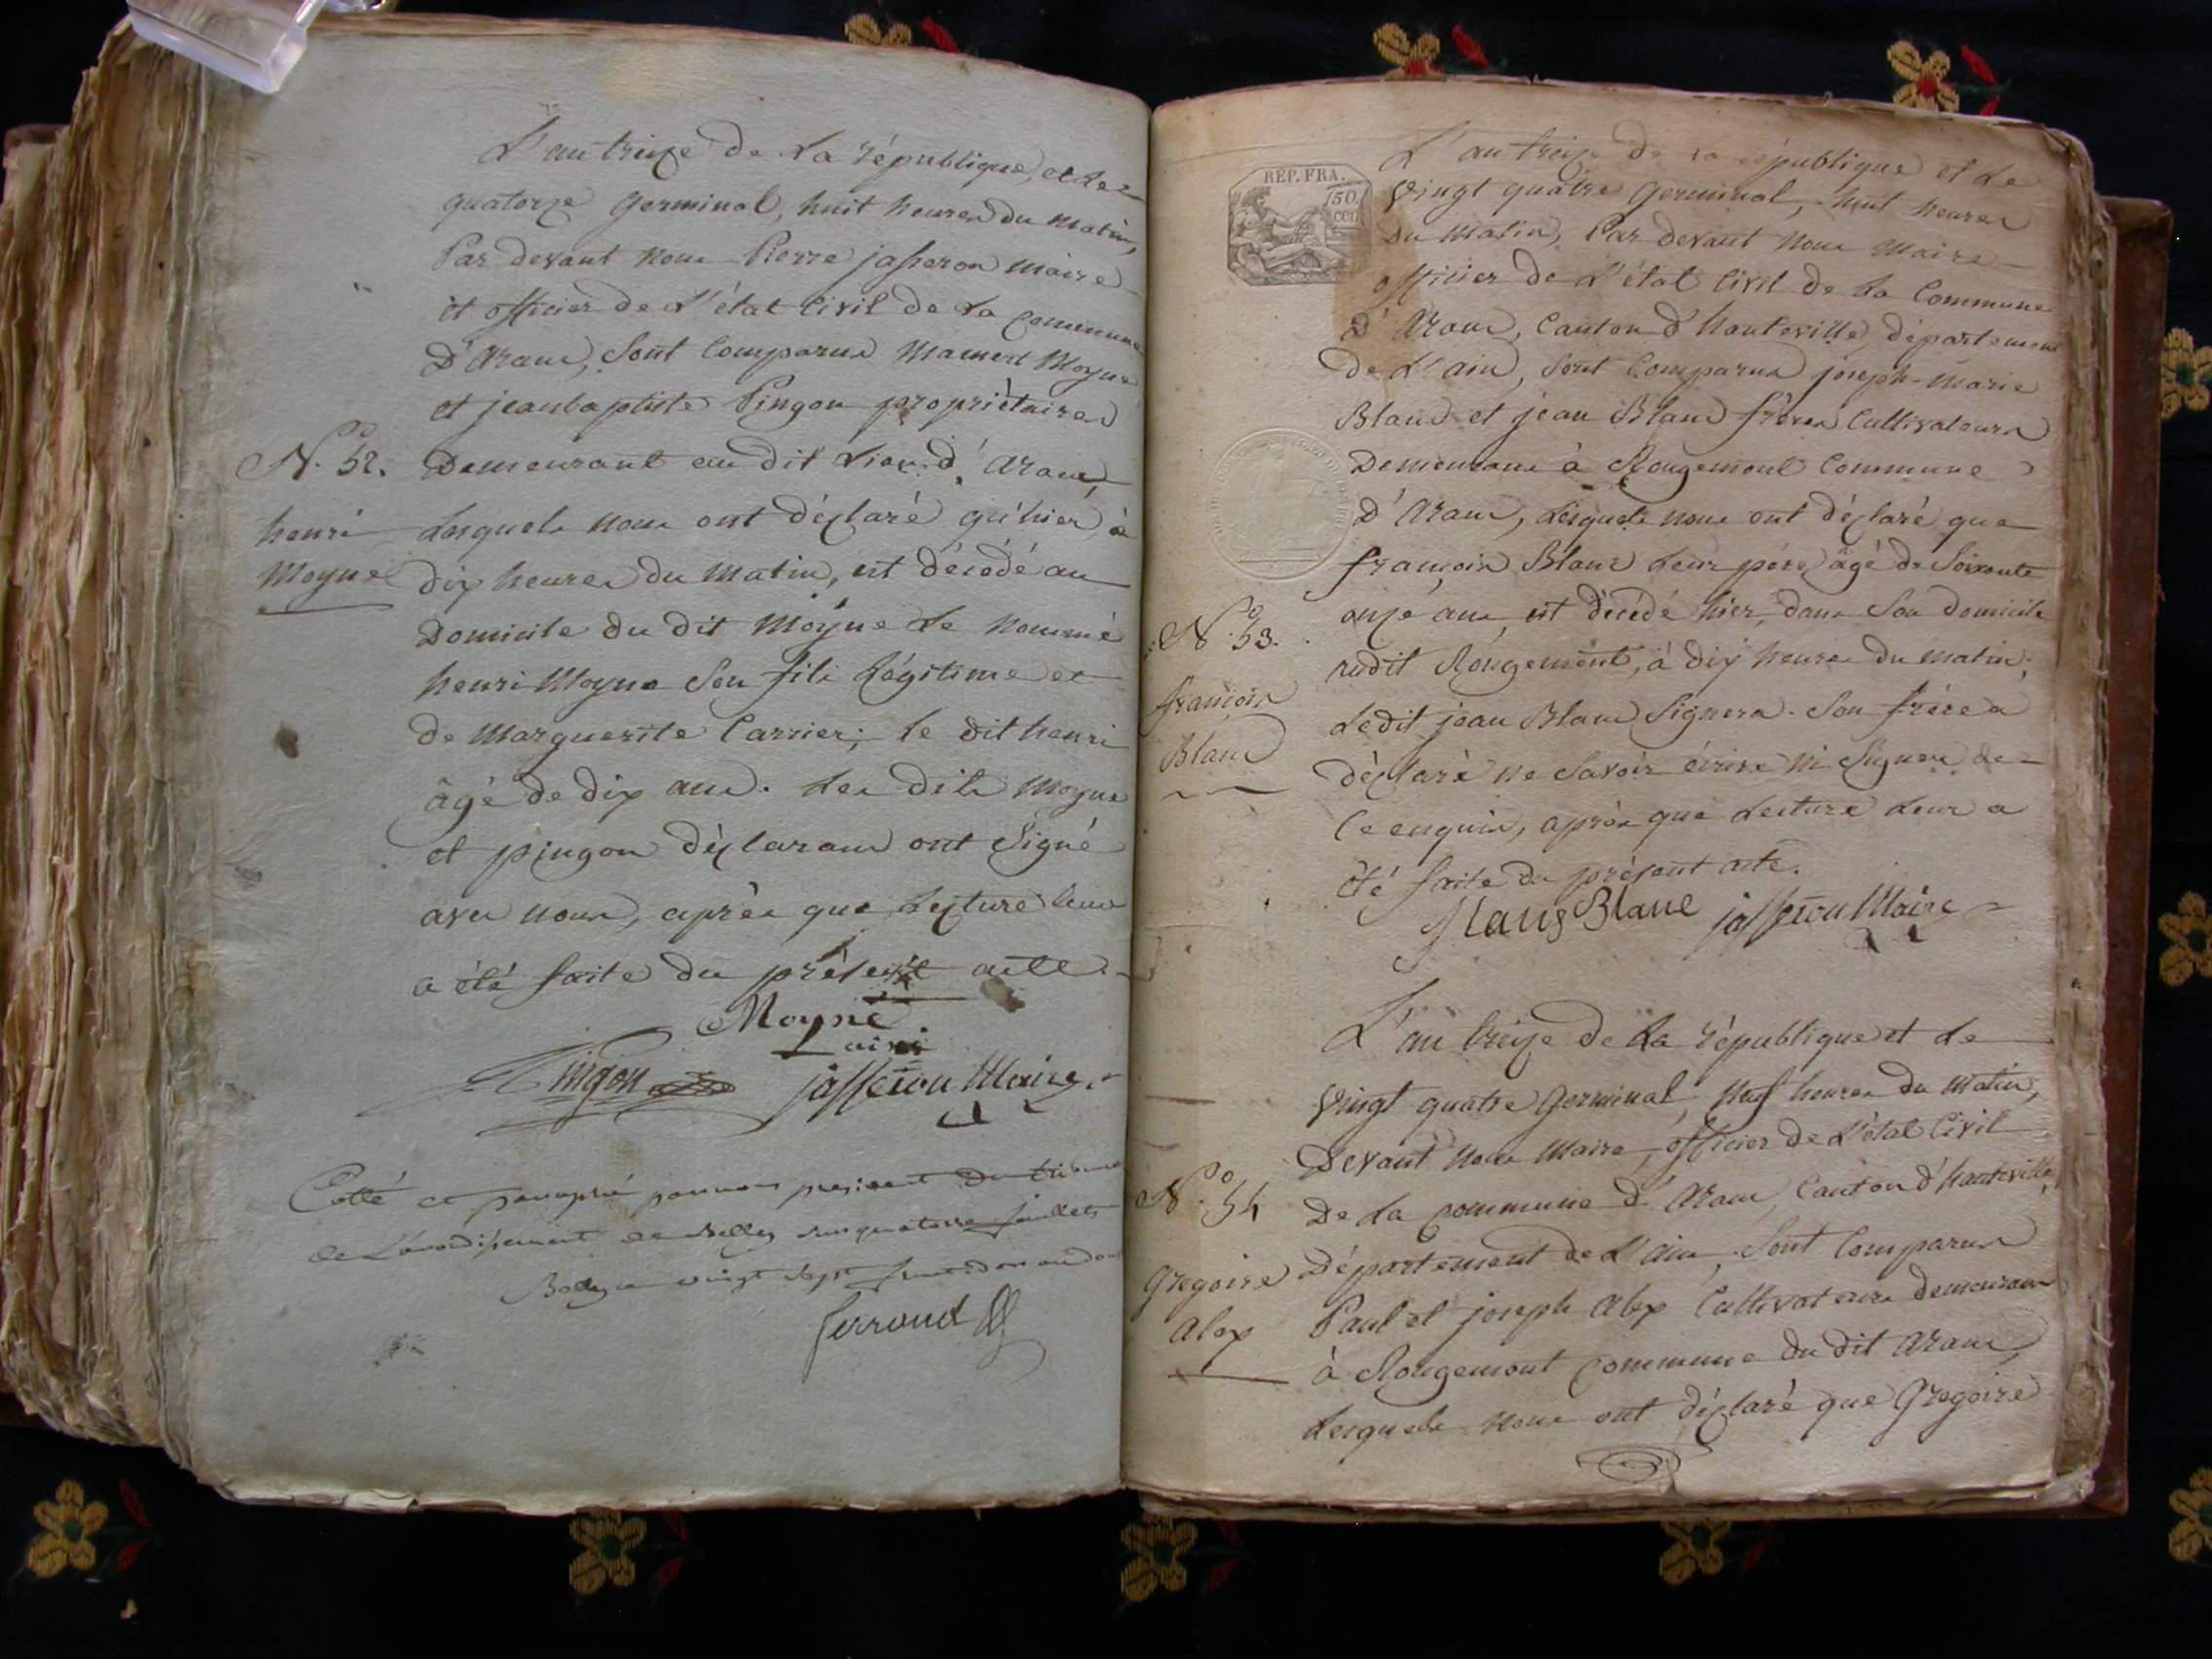 L'an treize de la république, et le
quatorze germinal, huit heures du matin,
Par devant nous Pierre jasseron maire
et officier de l'état civil de la commune
D'aranc, sont comparus mamert moyne
et jeanbaptiste Pingon propriétaires
N.° 52. Demeurant au dit lieu d'aranc,
henri Lesquels nous ont déclaré qu'hier, à
moyne dix heures du matin, est décédé au
Domicile du dit moyne le nommé
henri moyne son fils légitime et
de marguerite Carrier; le dit henri
âgé de dix ans. les dits moyne
et pingon déclarans ont signé
avec nous, après que lecture leur
a été faite du présent acte.
Moyne
Pingon jasseron Maire
Cotté et paraphé par nous president du tribunal
de l'arrondissement de Belley
Belley le vingt sept fructidor an
ferrond
REP. FRA.
50
CEN
L'an treize de la république et le
vingt quatre germinal, huit heures
Du matin, Par devant nous maire
officier de l'état civil de la commune
D'aranc, canton d'hauteville, département
de l'ain, sont comparus joseph-marie
Blanc et jean Blanc frères cultivateurs
Demeurans à Rougemont commune
D'aranc, lesquels nous ont déclaré que
françois Blanc leur père, âgé de soixante
N.° 53. onze ans, est décédé hier, dans son domicile
françois audit Rougemont, à dix heures du matin;
Blanc ledit jean Blanc signera. son frère a
déclaré ne savoir écrire ni signer de
ce enquis, après que lecture leur a
été faite du présent acte.
Blanc jasseron Maire
L'an treize de la république et le
vingt quatre germinal, neuf heures du matin,
Devant nous maire, officier de l'état civil
N.° 54 De la commune d'aranc, canton d'hauteville,
Gregoire Département de l'ain, sont comparus
alex Paul et joseph alex cultivateurs demeurans
à Rougemont commune du dit aranc,
Lesquels nous ont déclaré que Gregoire